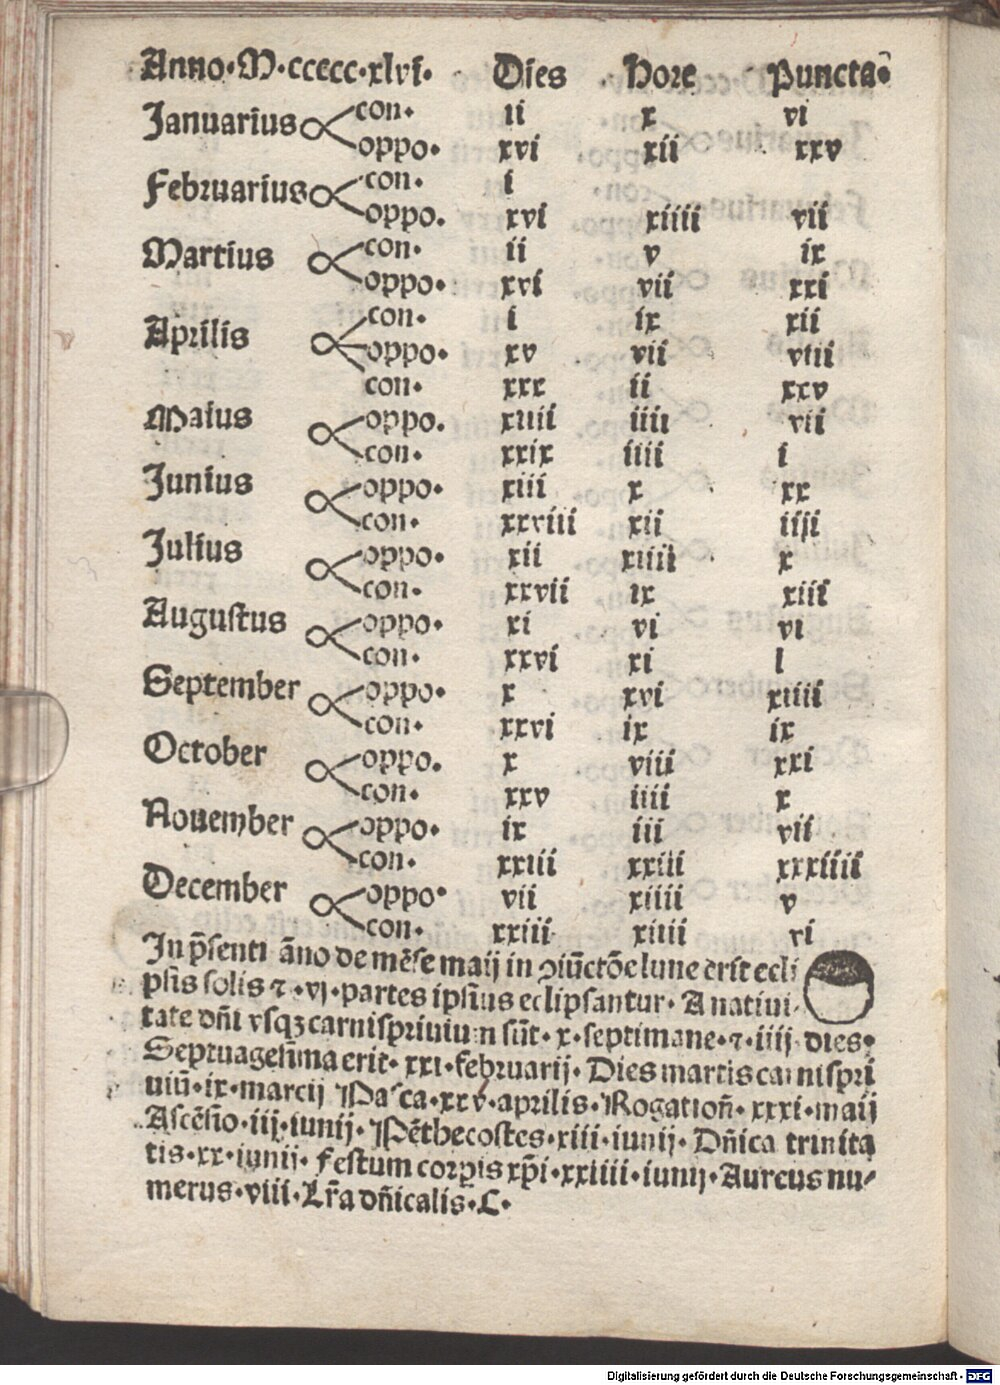 Anno·M·ccccc·xlvi· Dies Hore Puncta·
Januarius con· ii x vi
oppo· xvi xii xxv
Februarius con· i
oppo· xvi xiiii vii
Martius con· ii v ix
oppo· xvi vii xxi
Aprilis con· i ix xii
oppo· xv vii viii
con· xxx ii xxv
Maius oppo· xiiii iiii vii
con· xxix iiii i
Junius oppo· xiii x xx
con· xxviii xii iiii
Julius oppo· xii xiiii x
con· xxvii ix xiii
Augustus oppo· xi vi vi
con· xxvi xi i
September oppo· x xvi xiiii
con· xxvi ix ix
October oppo· x viii xxi
con· xxv iiii x
Nouember oppo· ix iii vii
con· xxiii xxiii xxxiiii
December oppo· vii xiiii v
con· xxiii xiiii vi
In p̄senti āno de mēse maij in ꝯiūctōe lune erit ecli
psis solis ⁊·vj·partes ipsius eclipsantur· A natiui-
tate dn̄i vsqꝫ carnispriuium sūt·x·septimane·⁊·iiij·dies·
Septuagesīma erit·xxi·februarij· Dies martis carnispri
uiū·ix·marcij Pasca·xxv·aprilis·Rogation̄·xxxi·maij
Ascēsio·iij·iunij·Pēthecostes·xiii·iunij· Dn̄ica trinita
tis·xx·iunij·Festum corꝑis xp̄i·xxiiii·iunij·Aureus nu-
merus·viii·Lr̄a dn̄icalis·C·
Digitalisierung gefördert durch die Deutsche Forschungsgemeinschaft - DFG